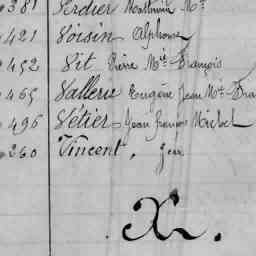 381 Verdier Mathurin Me
421 Voisin Alphonse
452 Vit Pierre Mie François
465 Vallerie Eugène Jean Mie Fra
496 Vétier Jean François Michel
260 Vincent, Jean
X.